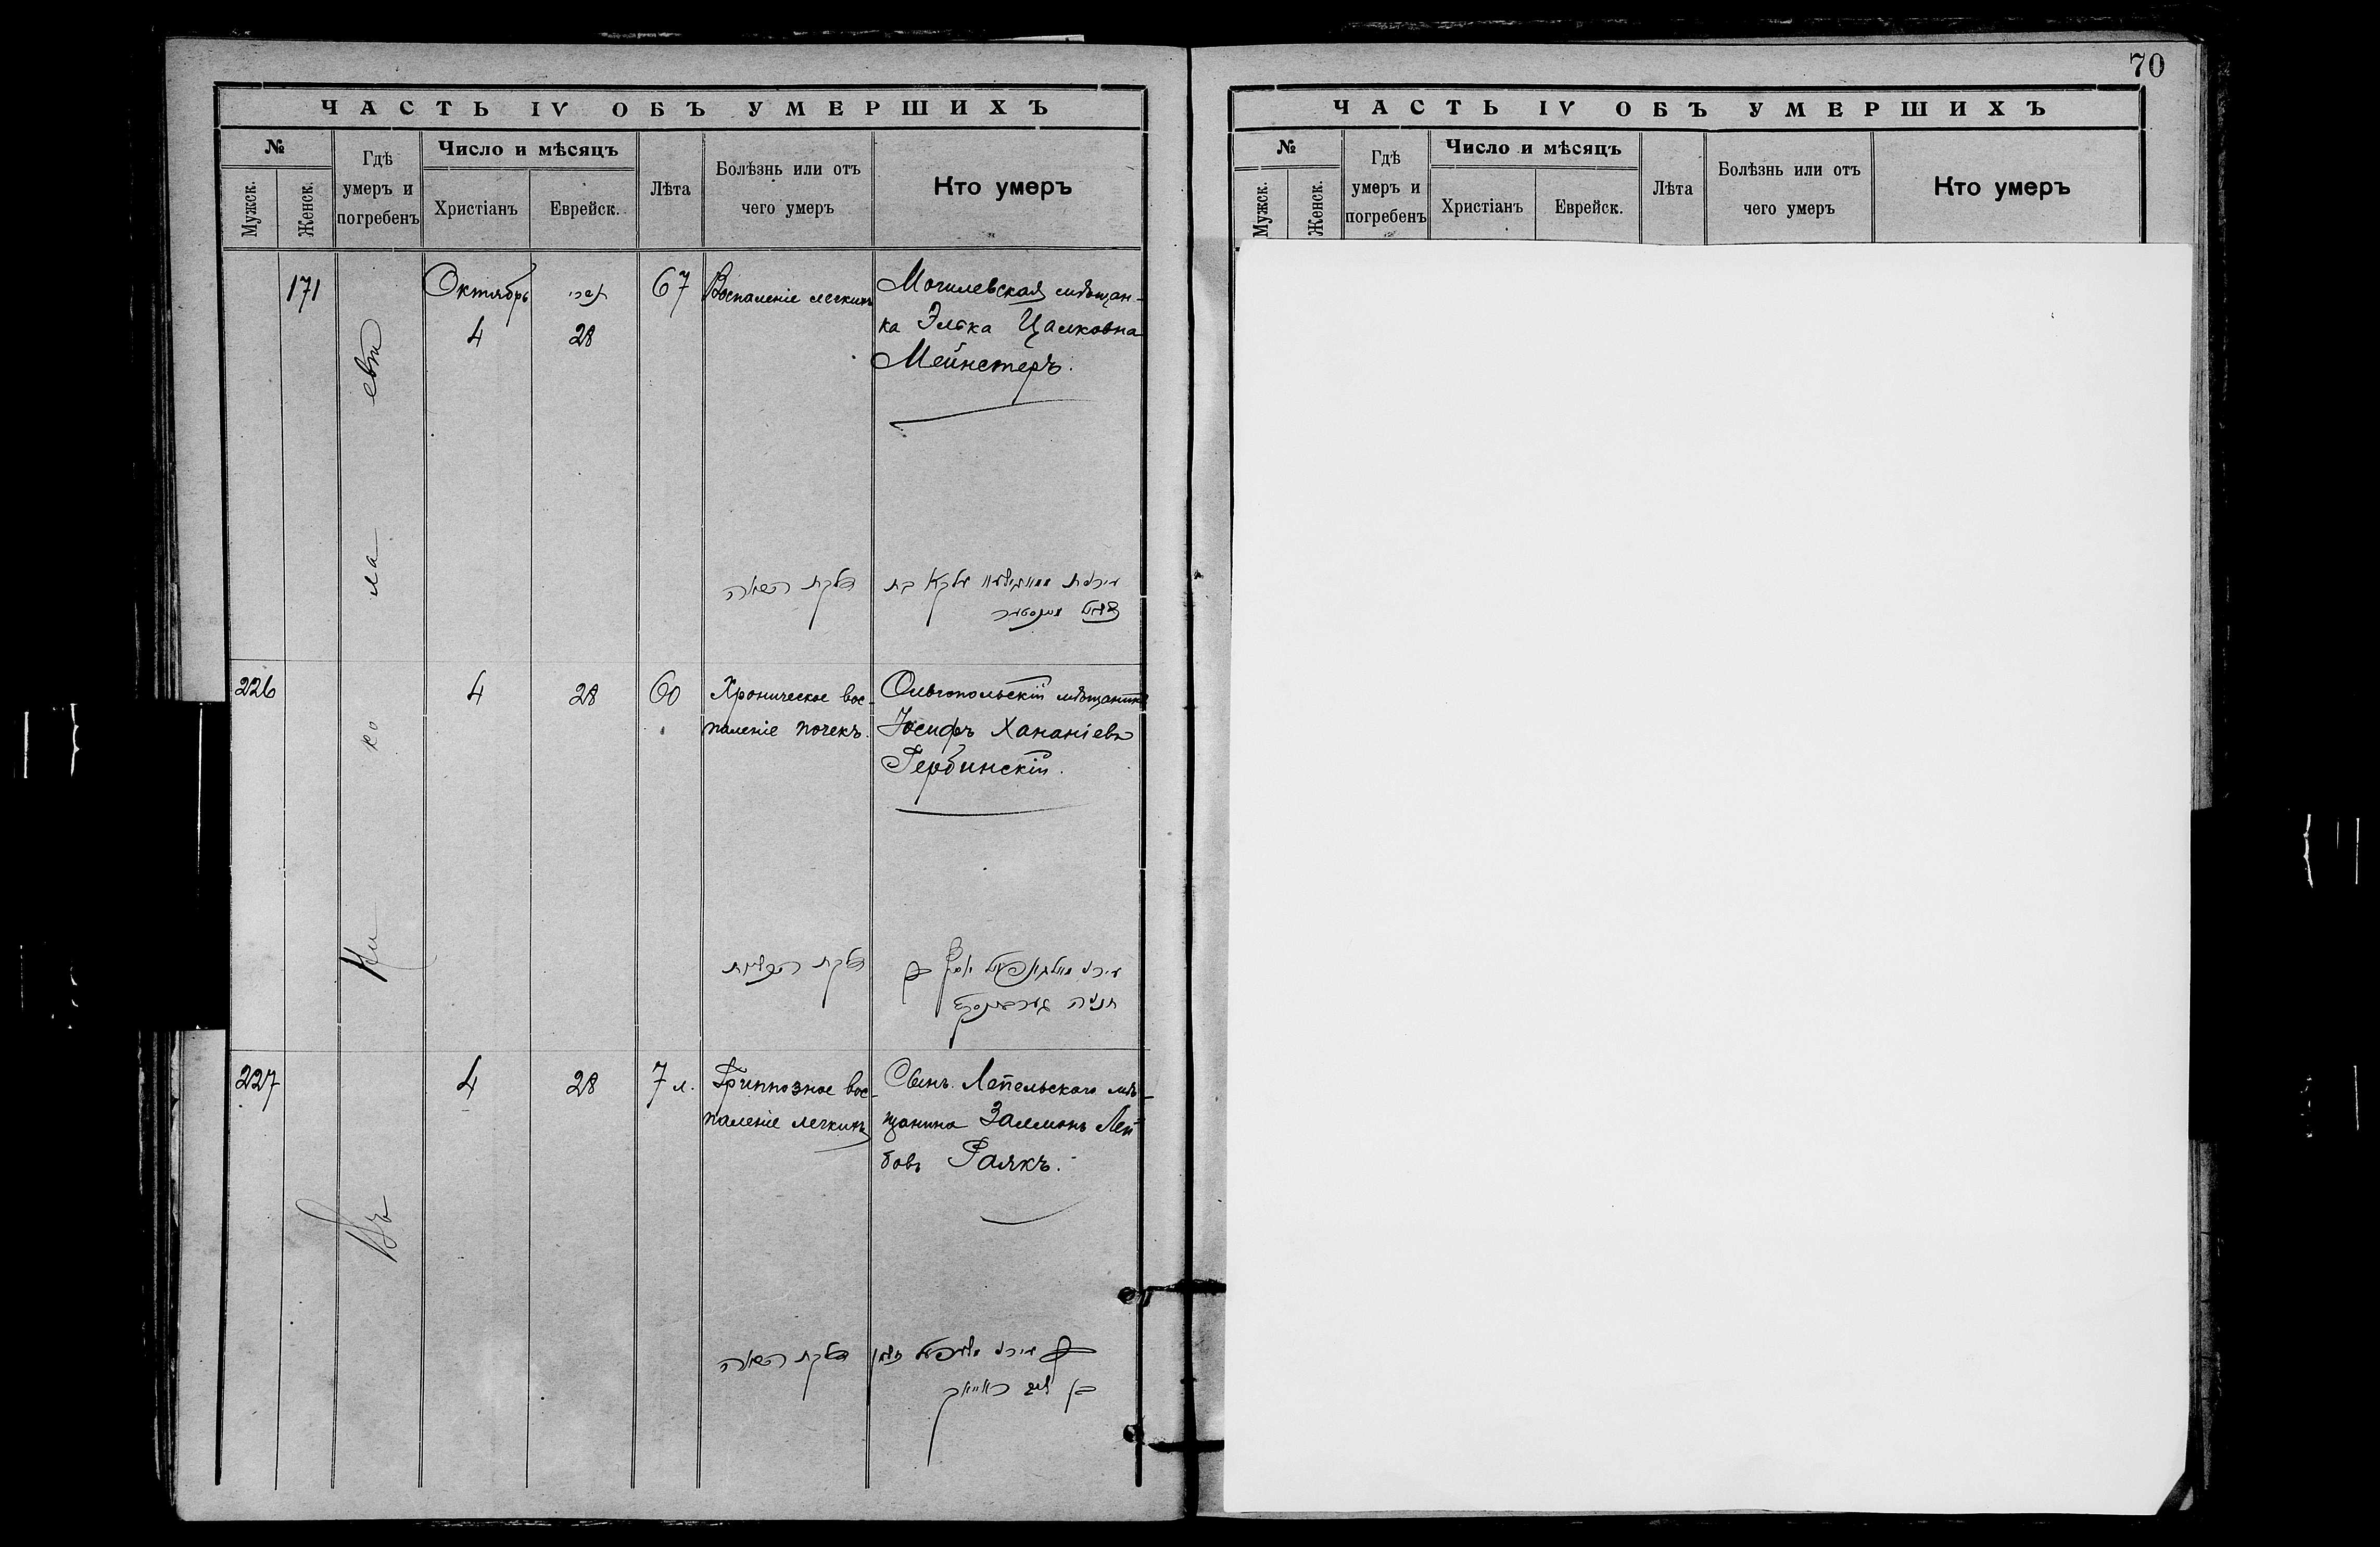 70
ЧАСТЬ IV ОБЪ УМЕРШИХЪ
№
Мужск.
Женск.
Гдѣ
умеръ и
погребенъ
Число и мѣсяцъ
Христіанъ
Еврейск.
Лѣта
Болѣзнь или отъ
чего умеръ
Кто умеръ
Въ Николаевѣ
171
Октябрь
4
תשרי
28
67
Воспаленіе легкихъ
Могилевская мѣщан-
ка Элька Цалковна
Мейнстеръ.
דלקת הריאה
226
4
28
60
Хроническое вос-
паленіе почекъ.
Ольгопольскій мѣщанинъ
Іосифъ Хананіевъ
Гербинскій.
דלקת הכליות
227
4
28
7 л.
Гриппозное вос-
паленіе легкихъ
Сынъ Лепельскаго мѣ-
щанина Залманъ Лей
бовъ Раякъ.
דלקת הריאה
ЧАСТЬ IV ОБЪ УМЕРШИХЪ
№
Мужск.
Женск.
Гдѣ
умеръ и
погребенъ
Число и мѣсяцъ
Христіанъ
Еврейск.
Лѣта
Болѣзнь или отъ
чего умеръ
Кто умеръ